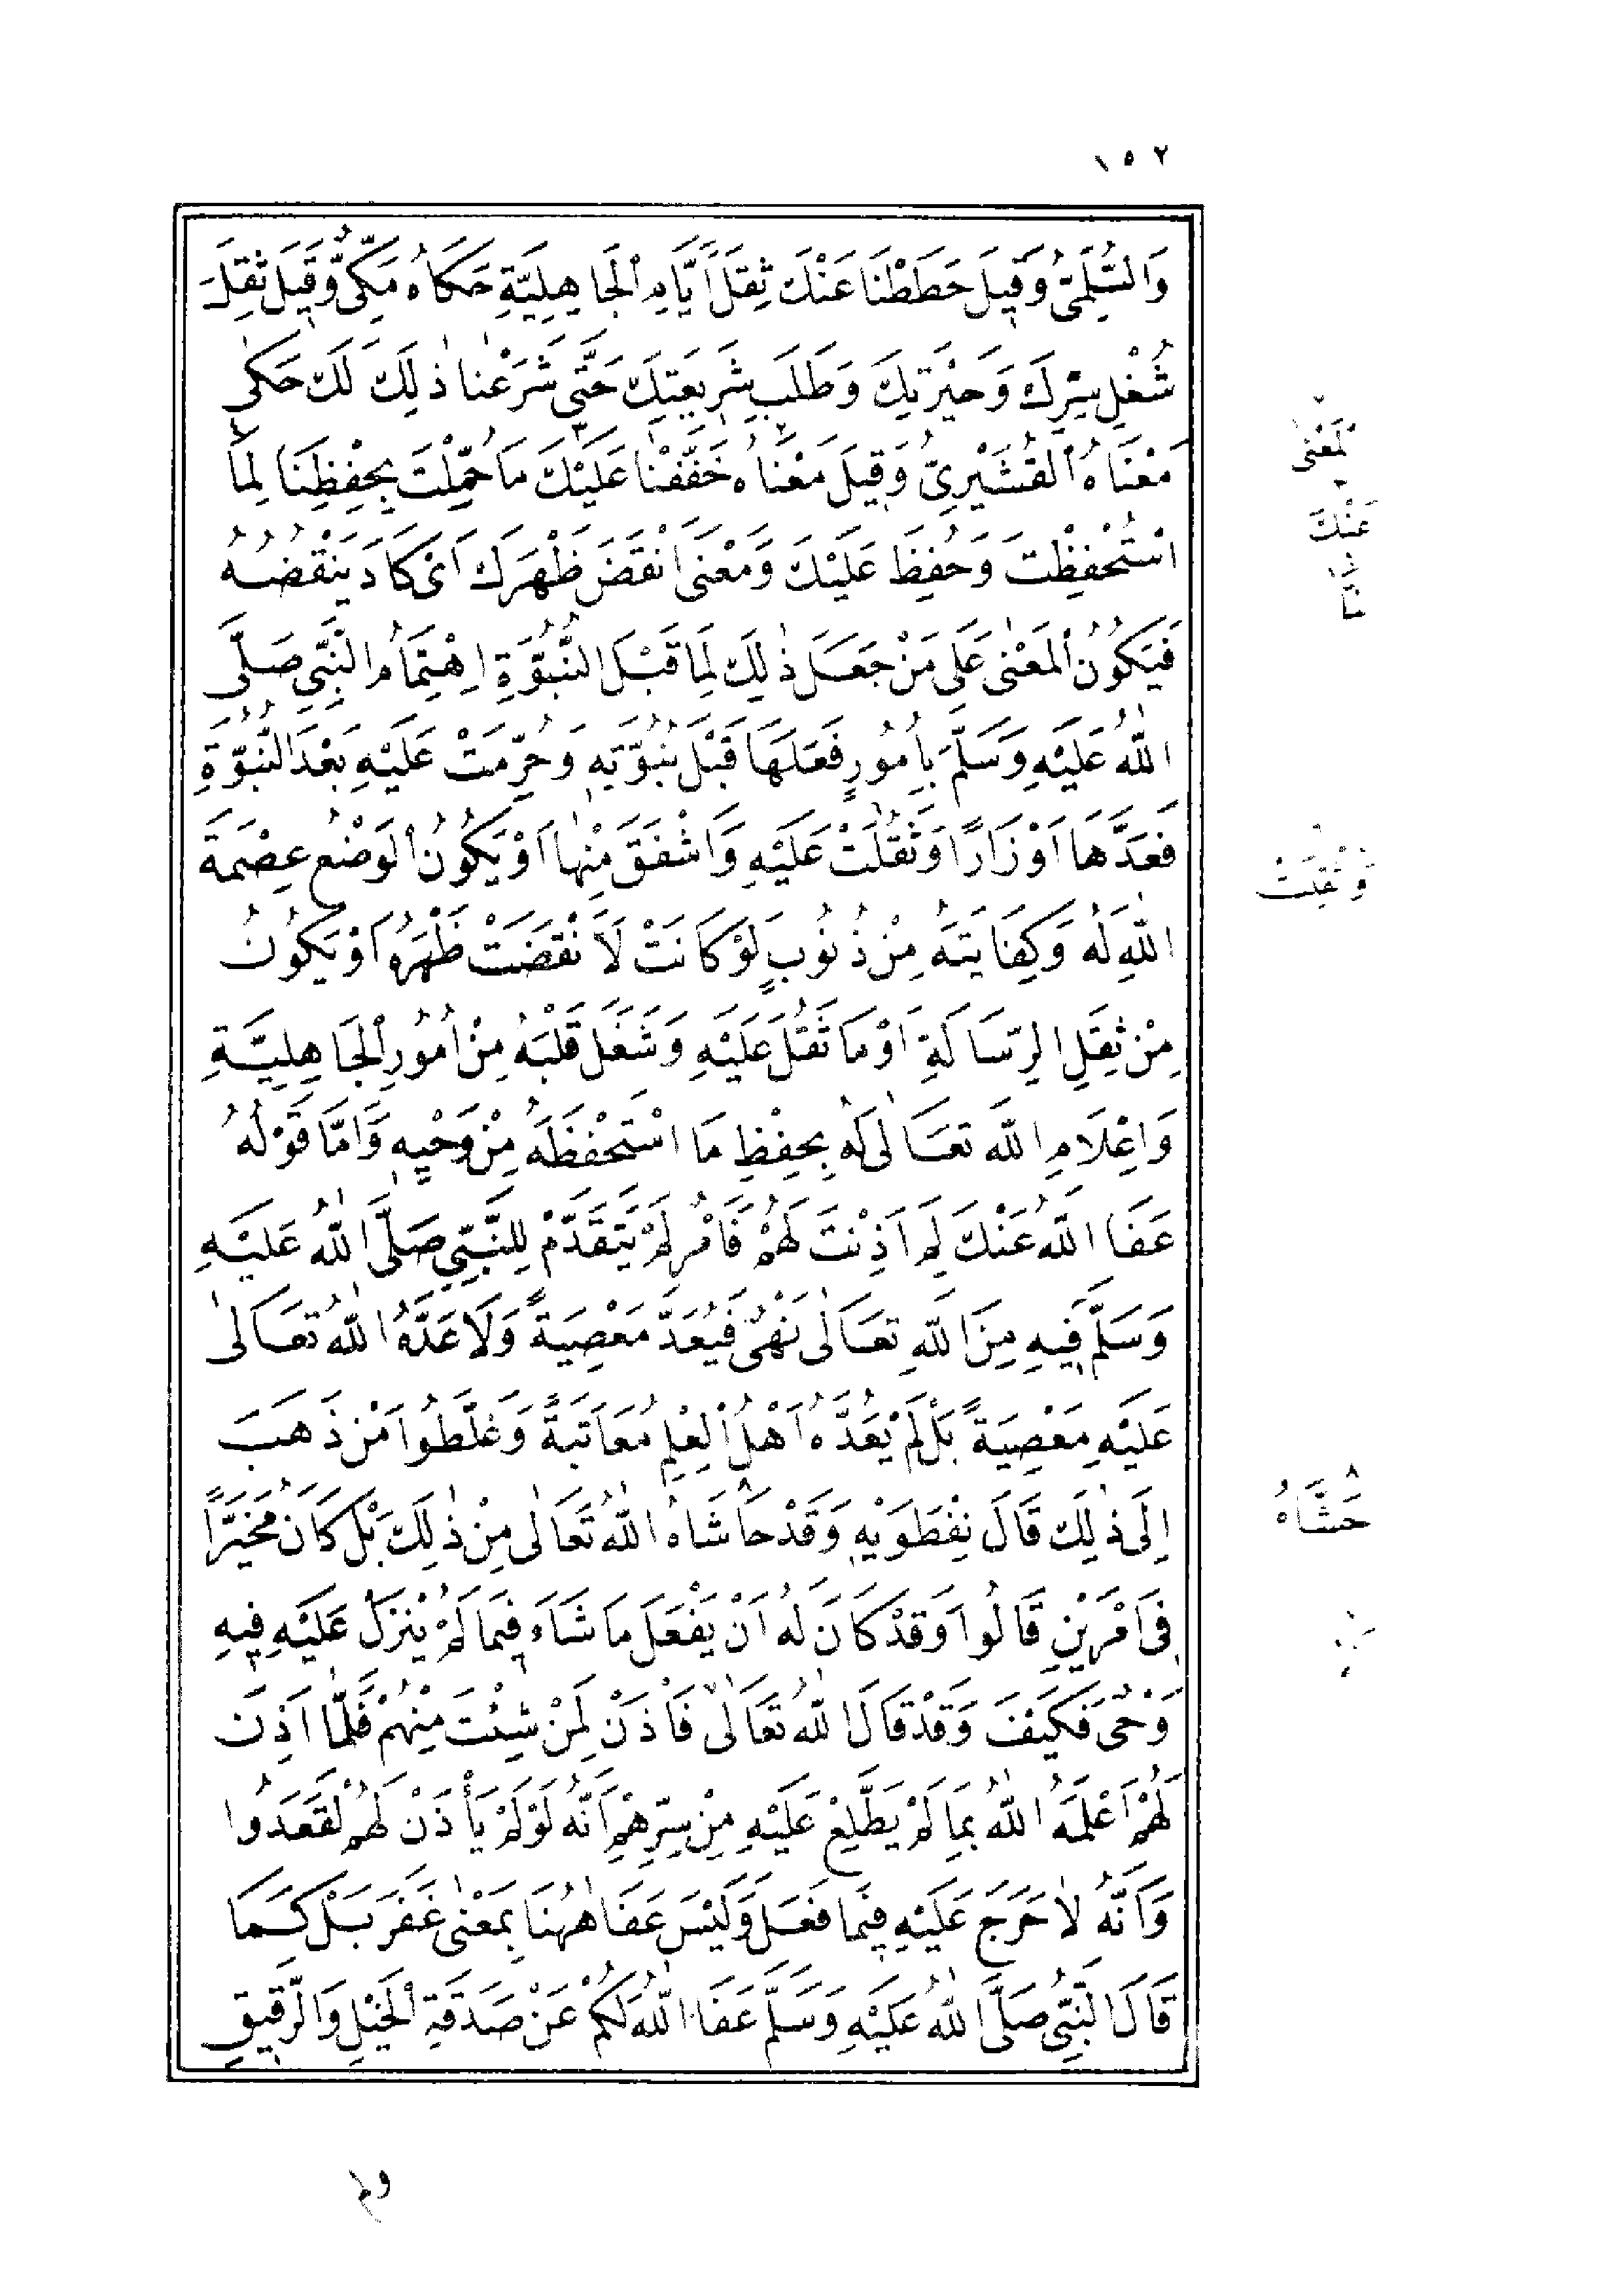 ١٥٢
وَالسُّلَمِيُّ وَقِيلَ حَطَطْنَا عَنْكَ ثِقَلَ اَيَّامِ الْجَاهِلِيَّةِ حَكَاهُ مَكِّىٌّ وَقِيلَ ثِقَلَ
شُغْلِ سِرِّكَ وَحَيْرَتِكَ وَطَلَبِ شَرِيعَتِكَ حَتَّى شَرَعْنَا ذٰلِكَ لَكَ حَكٰى
مَعْنَاهُ الْقُشَيْرِىُّ وَقِيلَ مَعْنَاهُ خَفَّفْنَا عَلَيْكَ مَا حُمِّلْتَ بِحِفْظِنَا لِمَا
اسْتُحْفِظْتَ وَحُفِظَ عَلَيْكَ وَمَعْنَى اَنْقَضَ ظَهْرَكَ اَىْ كَادَ يَنْقُضُهُ
فَيَكُونُ الْمَعْنٰى عَلَى مَنْ جَعَلَ ذٰلِكَ لِمَا قَبْلَ النُّبُوَّةِ اِهْتِمَامُ النَّبِيِّ صَلَّى
اللّٰهُ عَلَيْهِ وَسَلَّمَ بِاُمُورٍ فَعَلَهَا قَبْلَ نُبُوَّتِهِ وَحُرِّمَتْ عَلَيْهِ بَعْدَ النُّبُوَّةِ
فَعَدَّهَا اَوْزَارًا وَثَقُلَتْ عَلَيْهِ وَاَشْفَقَ مِنْهَا اَوْ يَكُونُ الْوَضْعُ عِصْمَةَ
اللّٰهِ لَهُ وَكِفَايَتَهُ مِنْ ذُنُوبٍ لَوْ كَانَتْ لَاَنْقَضَتْ ظَهْرَهُ اَوْ يَكُونُ
مِنْ ثِقَلِ الرِّسَالَةِ اَوْ مَا ثَقُلَ عَلَيْهِ وَشَغَلَ قَلْبَهُ مِنْ اُمُورِ الْجَاهِلِيَّةِ
وَاِعْلَامِ اللّٰهِ تَعَالٰى لَهُ بِحِفْظِ مَا اسْتَحْفَظَهُ مِنْ وَحْيِهِ وَاَمَّا قَوْلُهُ
عَفَا اللّٰهُ عَنْكَ لِمَ اَذِنْتَ لَهُمْ فَاَمْرٌ لَمْ يَتَقَدَّمْ لِلنَّبِيِّ صَلَّى اللّٰهُ عَلَيْهِ
وَسَلَّمَ فِيهِ مِنَ اللّٰهِ تَعَالٰى نَهْىٌ فَيُعَدَّ مَعْصِيَةً وَلَا عَدَّهُ اللّٰهُ تَعَالٰى
عَلَيْهِ مَعْصِيَةً بَلْ لَمْ يَعُدَّهُ اَهْلُ الْعِلْمِ مُعَاتَبَةً وَغَلَّطُوا مَنْ ذَهَبَ
اِلَى ذٰلِكَ قَالَ نِفْطَوَيْهِ وَقَدْ حَاشَاهُ اللّٰهُ تَعَالٰى مِنْ ذٰلِكَ بَلْ كَانَ مُخَيَّرًا
فِى اَمْرَيْنِ قَالُوا وَقَدْ كَانَ لَهُ اَنْ يَفْعَلَ مَا شَاءَ فِيمَا لَمْ يُنْزَلْ عَلَيْهِ فِيهِ
وَحْىٌ فَكَيْفَ وَقَدْ قَالَ اللّٰهُ تَعَالٰى فَاْذَنْ لِمَنْ شِئْتَ مِنْهُمْ فَلَمَّا اَذِنَ
لَهُمْ اَعْلَمَهُ اللّٰهُ بِمَا لَمْ يَطَّلِعْ عَلَيْهِ مِنْ سِرِّهِمْ اَنَّهُ لَوْ لَمْ يَأْذَنْ لَهُمْ لَقَعَدُوا
وَاَنَّهُ لَا حَرَجَ عَلَيْهِ فِيمَا فَعَلَ وَلَيْسَ عَفَا هٰهُنَا بِمَعْنٰى غَفَرَ بَلْ كَمَا
قَالَ النَّبِيُّ صَلَّى اللّٰهُ عَلَيْهِ وَسَلَّمَ عَفَا اللّٰهُ لَكُمْ عَنْ صَدَقَةِ الْخَيْلِ وَالرَّقِيقِ
اَلْمَعْنٰى
عَنْكَ
وَثَقُلَتْ
حَشَّاهُ
ولم